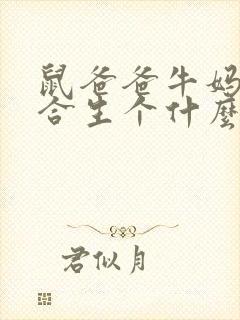 鼠爸爸牛妈
合生个什麼
君似月